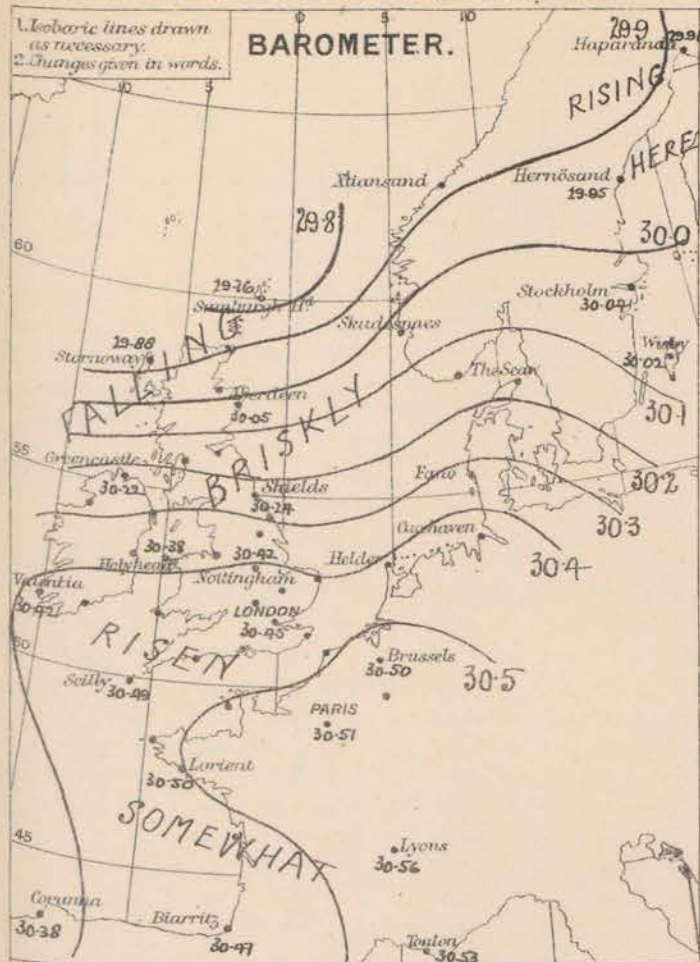 1. Isobaric lines drawn
as necessary.
2. Changes given in words.
BAROMETER.
10
5
0
5
10
29.9
Haparanda
29.91
RISING
HERE
Xtiansand
Hernösand
29.95
29.8
60
30.0
29.76
Sumburgh Hd.
Stockholm
30.04
Skudesnaes
29.88
Stornoway
Wisby
30.02
The Scaw
FALLING
Aberdeen
30.05
30.1
BRISKLY
Greencastle
55
Fano
30.2
30.22
Shields
30.24
30.3
Cuxhaven
30.38
Holyhead
30.42
Helder
30.4
Valentia
30.42
Nottingham
LONDON
30.45
RISEN
50
Brussels
30.50
30.5
Scilly
30.49
PARIS
30.51
Lorient
30.50
SOMEWHAT
45
Lyons
30.56
Corunna
30.38
Biarritz
30.47
Toulon
30.53